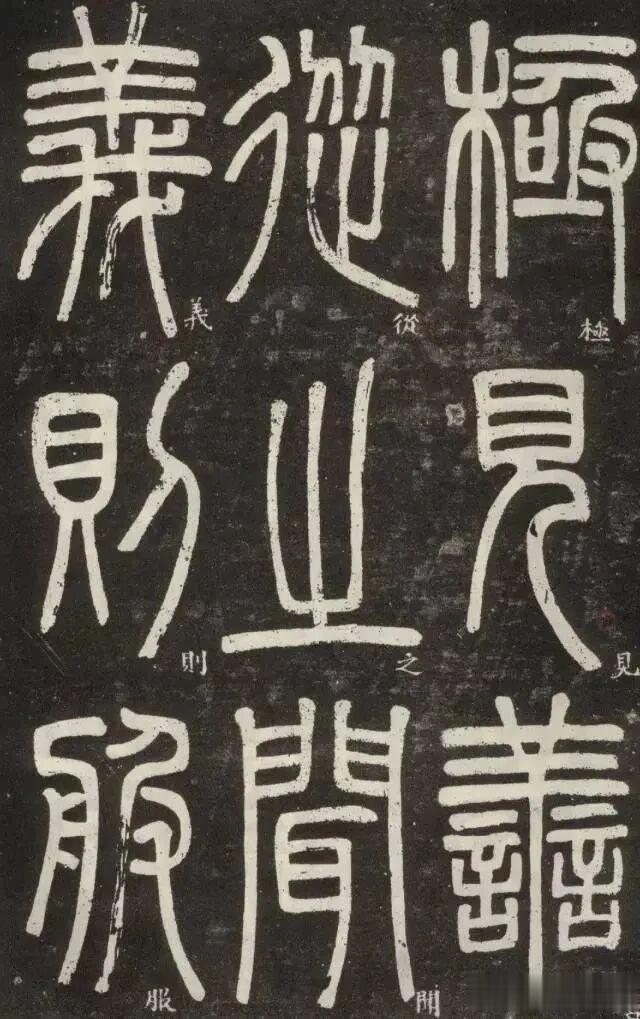 極見善
極見
從之聞
從之聞
義則服
義則服